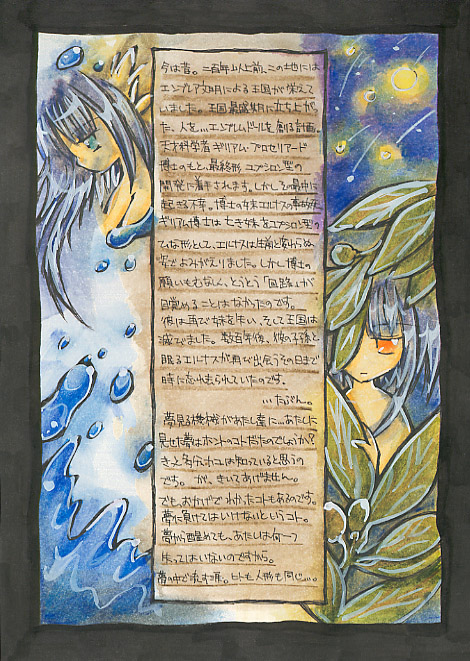 今は昔。二百年以上前、この土地には
エンブレア文明による王国が栄えて
いました。王国最盛期に立ち上がっ
た、人を…エンブレム・ドールを創る計画。
天才科学者ギリアム・プロセリアード
博士のもと、最終形ユプシロン型の
開発に着手されます。しかしその最中に
起きる不幸。博士の妹エルナスの事故死
ギリアム博士は亡き妹をユプシロン型の
ひな形として、エルナスは生前と変わらぬ
姿でよみがえりました。しかし博士の
願いもむなしく、とうとう「回路」が
目覚めることはなかったのです。
彼は再び妹を失い、そして王国は
滅びました。数百年後、彼の子孫と
眠るエルナスが再び出会うその日まで
時に忘れ去られていたのです。
…たぶん。
夢見る機械があたし達に…あたしに
見せた夢はホントのコトだったのでしょうか?
きっと多分カユは知っていると思うの
です。が、きいてあげません。
でも、おかげでわかったコトもあるのです。
夢に負けてはいけないというコト。
夢から醒めても、あたしは何一つ
失ってはいないのですから。
夢の中で流す涙。ヒトも人形も同じ…。